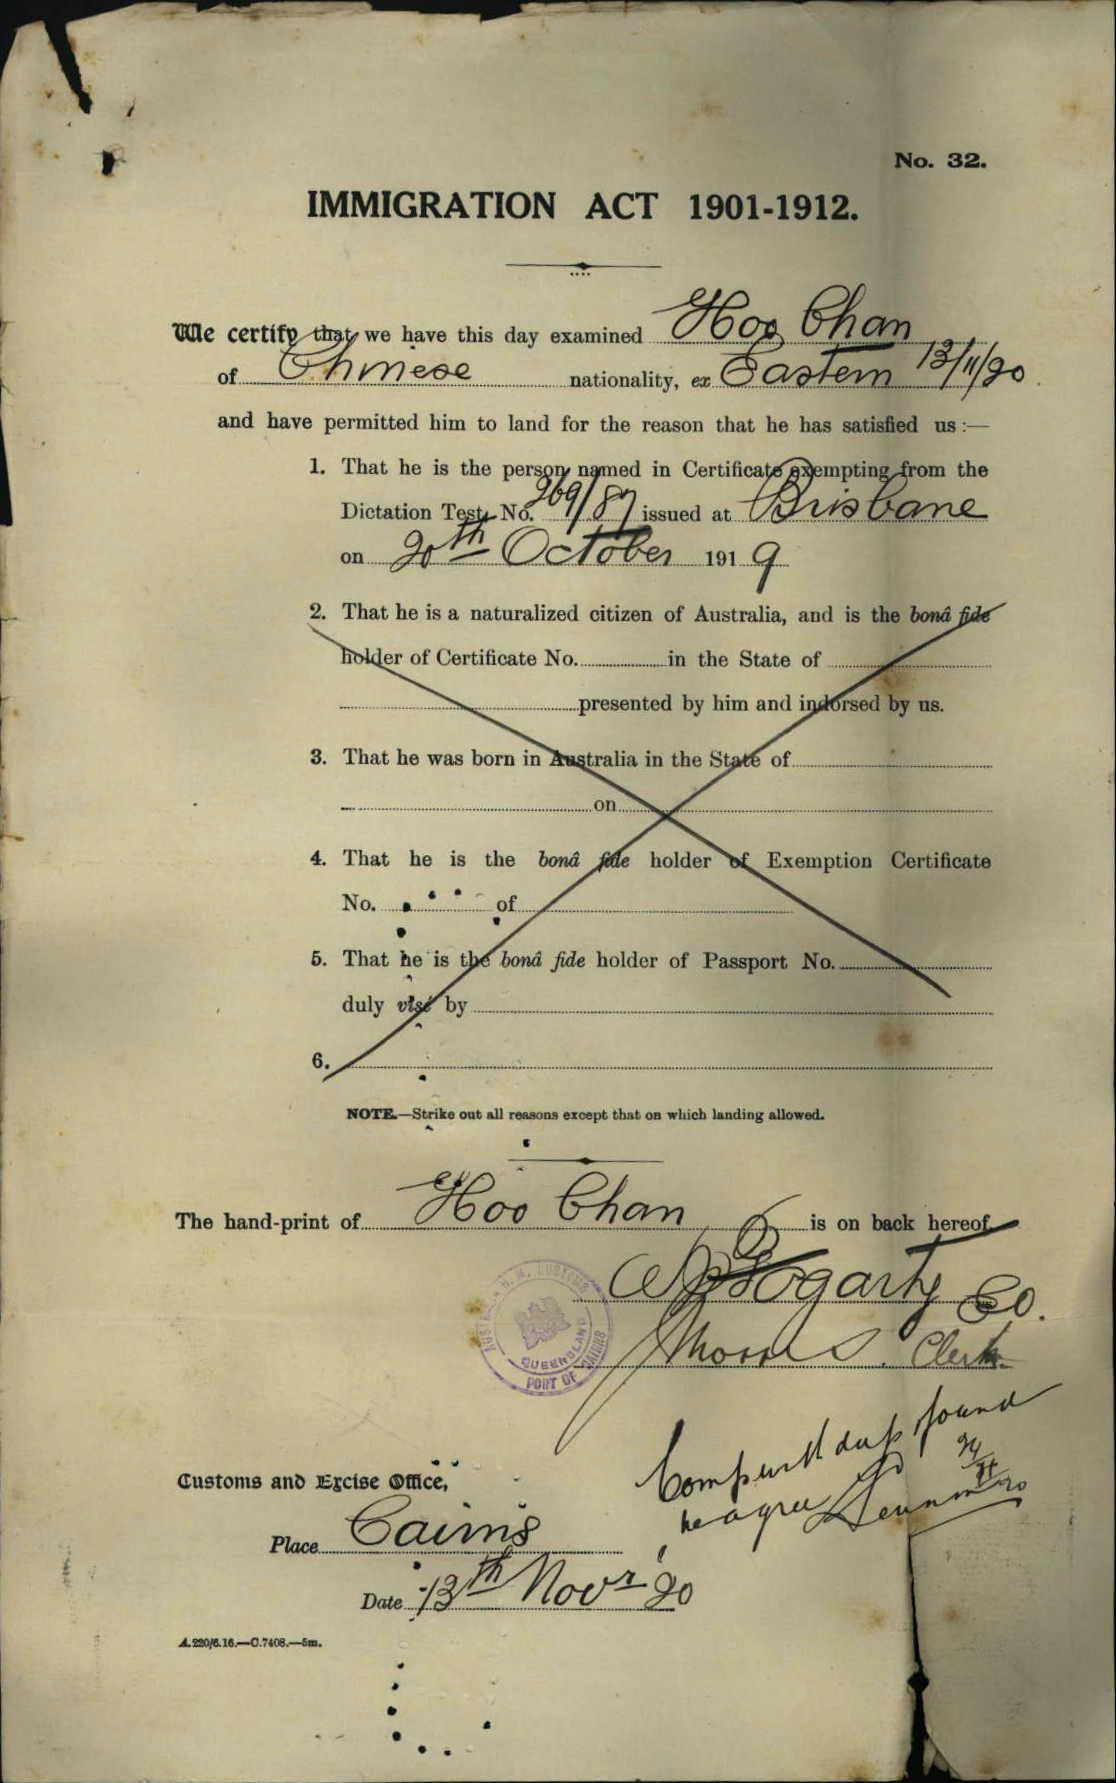 No. 32.
IMMIGRATION ACT 1901-1912.
We certify that we have this day examined Hoo Chan
of Chinese nationality, ex Eastern 13/11/20
and have permitted him to land for the reason that he has satisfied us :—
1. That he is the person named in Certificate exempting from the
Dictation Test, No. 269/87 issued at Brisbane
on 20th October 1919
2. That he is a naturalized citizen of Australia, and is the bonâ fide
holder of Certificate No. in the State of
presented by him and indorsed by us.
3. That he was born in Australia in the State of
on
4. That he is the bonâ fide holder of Exemption Certificate
No. of
5. That he is the bonâ fide holder of Passport No.
duly visé by
6.
NOTE.—Strike out all reasons except that on which landing allowed.
The hand-print of Hoo Chan is on back hereof
Fogarty CO.
Clerk.
H. M. CUSTOMS
QUEENSLAND
PORT OF CAIRNS
found
he agree
Customs and Excise Office,
Place Cairns
Date 13th Novr 20
A.220/6.16.—C.7408.—5m.